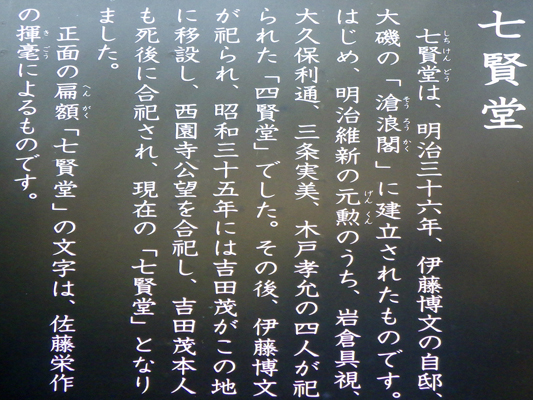 七賢堂
七賢堂は、明治三十六年、伊藤博文の自邸、
大磯の「滄浪閣」に建立されたものです。
はじめ、明治維新の元勲のうち、岩倉具視、
大久保利通、三条実美、木戸孝允の四人が祀
られた「四賢堂」でした。その後、伊藤博文
が祀られ、昭和三十五年には吉田茂がこの地
に移設し、西園寺公望を合祀し、吉田茂本人
も死後に合祀され、現在の「七賢堂」となり
ました。
正面の扁額「七賢堂」の文字は、佐藤栄作
の揮毫によるものです。
しちけんどう
そうろうかく
げんくん
へんがく
きごう